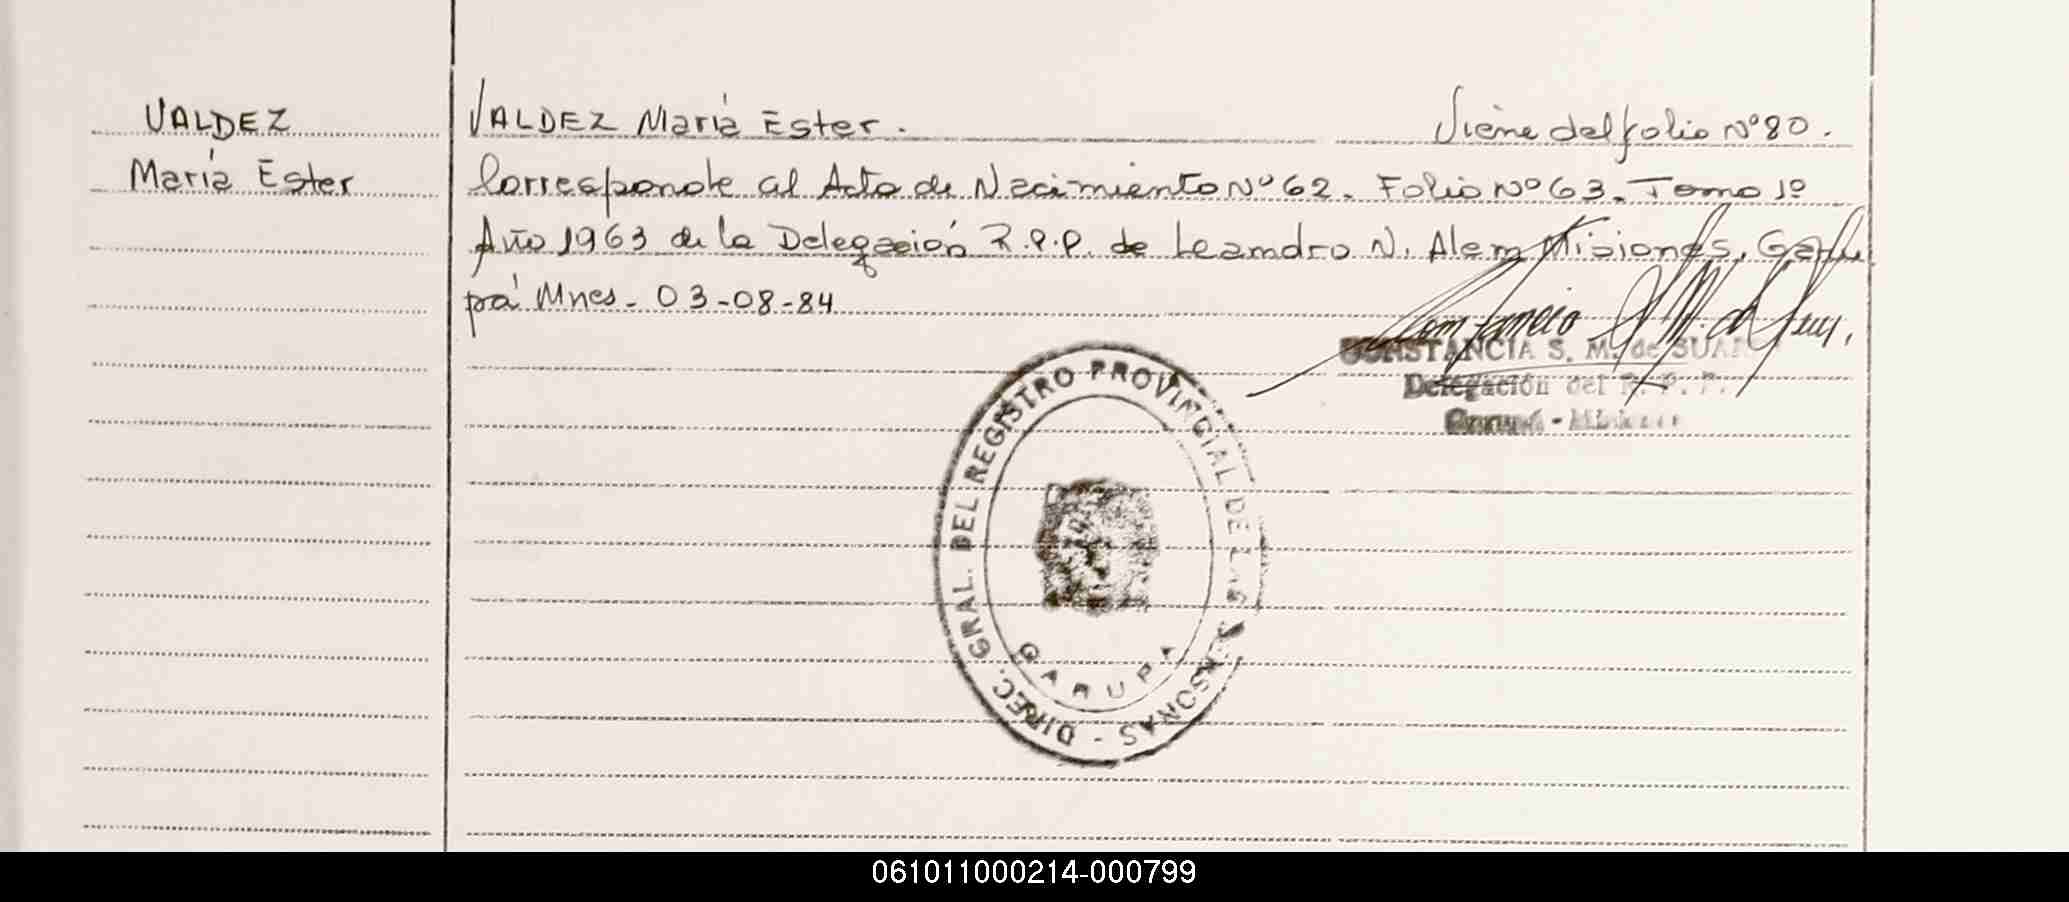 VALDEZ
María Ester
VALDEZ María Ester. Viene del folio Nº 80.
Corresponde al Acta de Nacimiento Nº 62. Folio Nº 63. Tomo 1º
Año 1963 de la Delegación R.P.P. de Leandro N. Alem Misiones. Garu
pá Mnes. 03-08-84
CONSTANCIA S. M. de SUAR
Delegación del R. P. P.
Garupá - Misiones
DIREC. GRAL. DEL REGISTRO PROVINCIAL DE LAS PERSONAS -
GARUPA
061011000214-000799